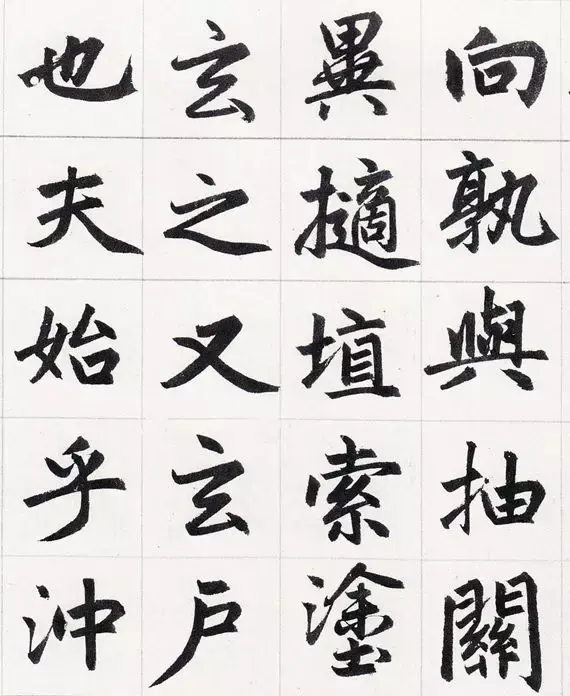 向孰與抽關
異擿埴索塗
玄之又玄戶
也夫始乎沖